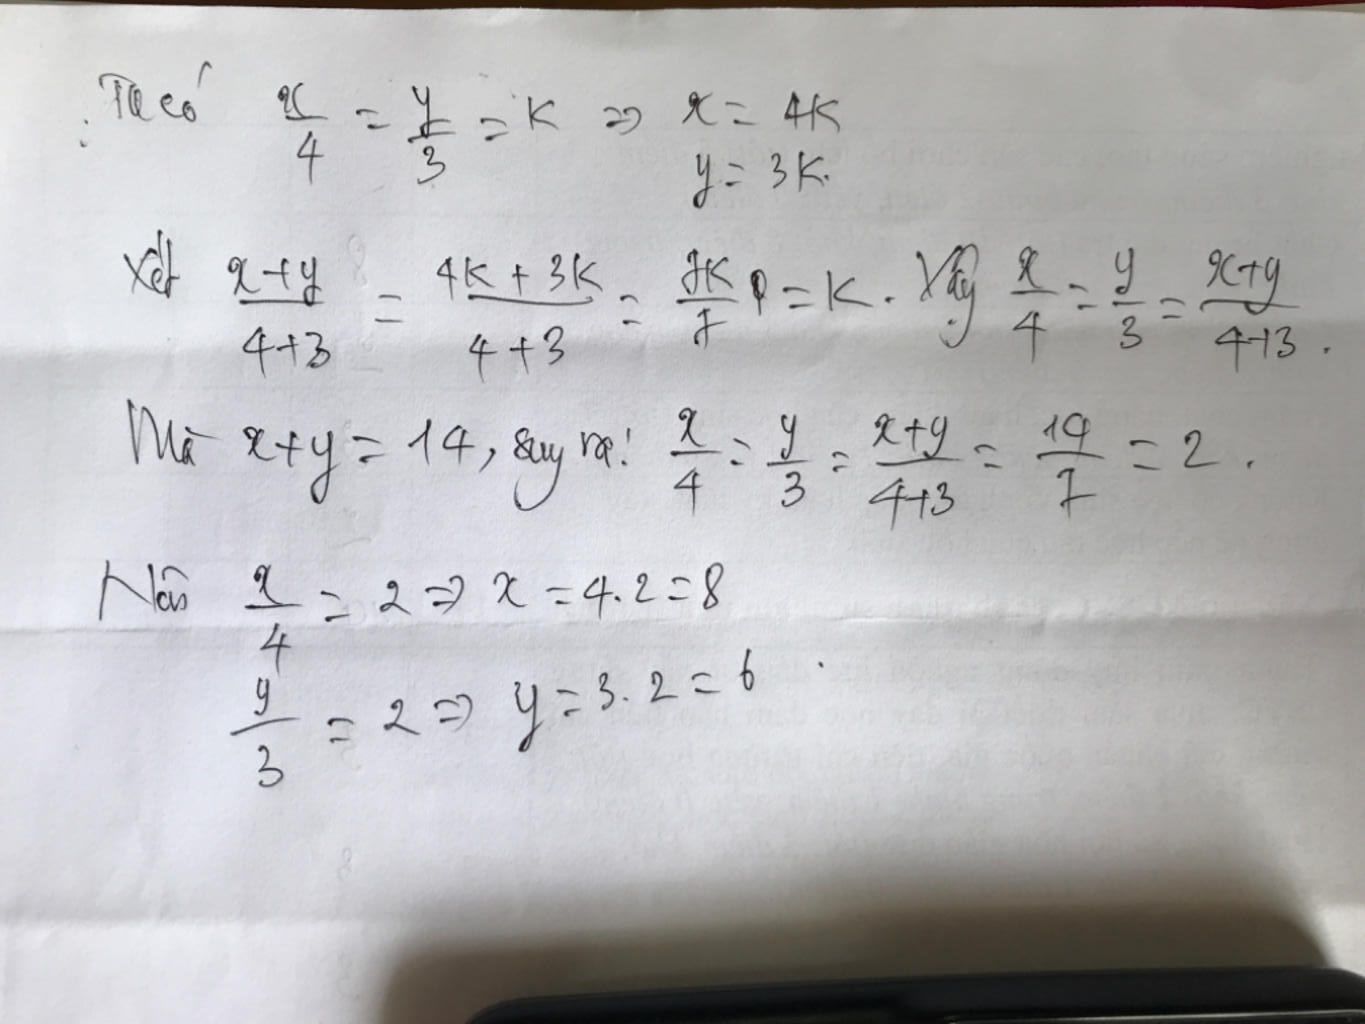 Ta có x/4 = y/3 = K ⇒ x = 4K
y = 3K.
Xét x+y/4+3 = 4K + 3K/4+3 = 7K/7 = K. Vậy x/4 = y/3 = x+y/4+3.
Mà x+y = 14, suy ra: x/4 = y/3 = x+y/4+3 = 14/7 = 2.
Nên x/4 = 2 ⇒ x = 4.2 = 8
y/3 = 2 ⇒ y = 3.2 = 6